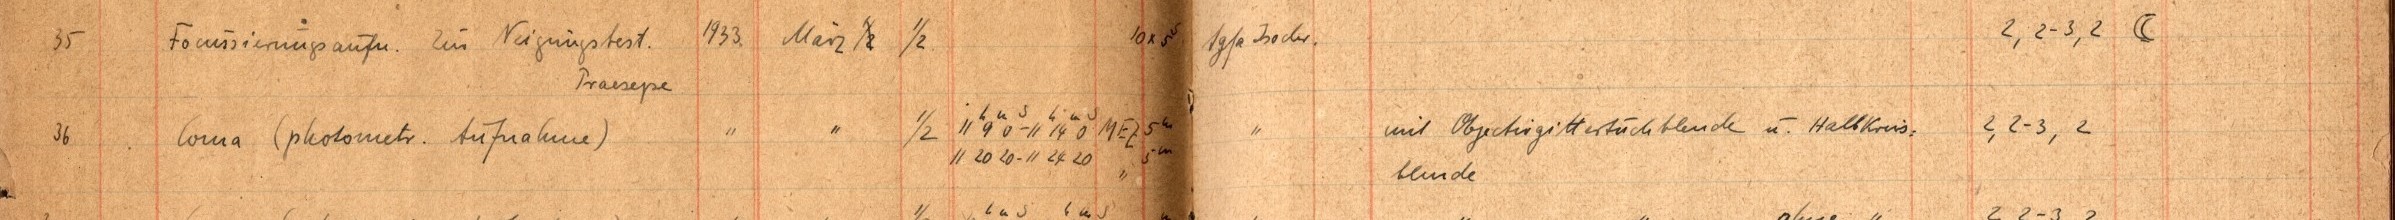 35 Focussierungsaufn. zur Neigungsbest. 1933. März 1/2 10 x 5s Agfa Isochr. 2, 2-3, 2 ☾
Praesepe
36 Coma (photometr. Aufnahme) " " 1/2 11h 9m 0s - 11h 14m 0s MEZ 5m " mit Objectivgittertuchblende u. Halbkreis= 2, 2-3, 2
11 20 20 - 11 24 20 " 5m
blende
1/2 h m s h m s m " " " ohne " 2, 2-3, 2